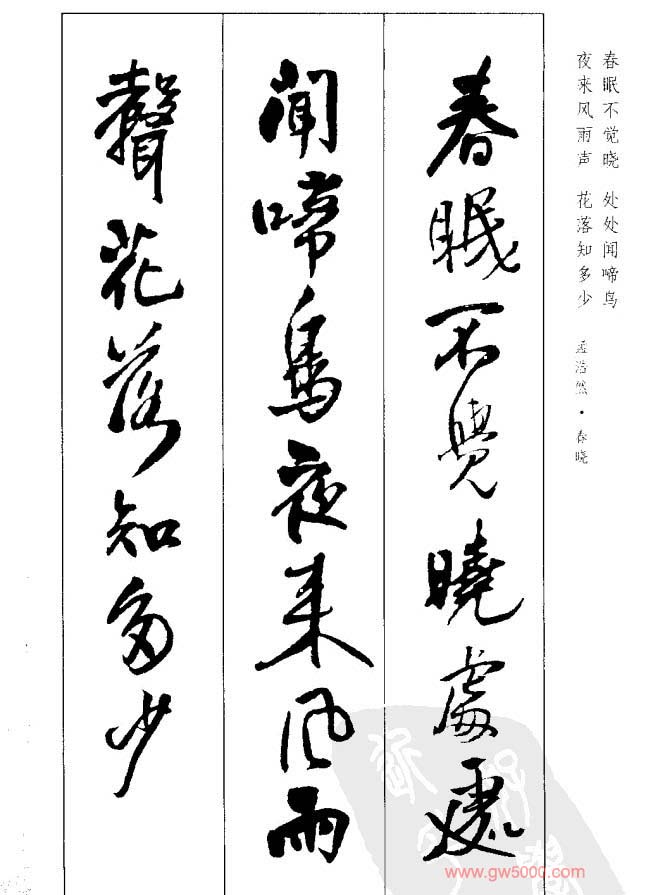 春眠不觉晓 处处闻啼鸟
夜来风雨声 花落知多少 孟浩然·春晓
春眠不覺曉處處
聞啼鳥夜来风雨
聲花落知多少
www.gw5000.com